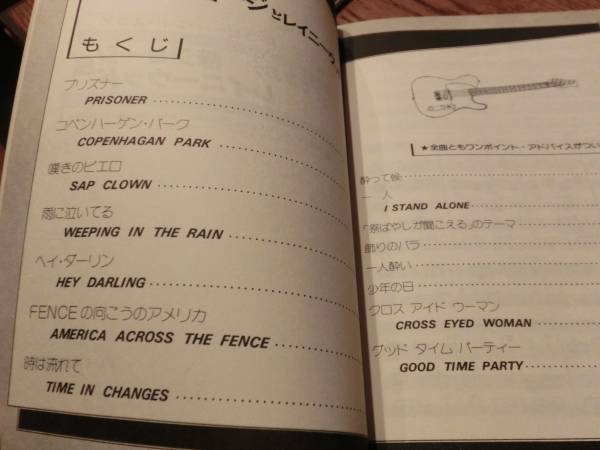 ージとレイニーウ
もくじ
プリズナー
PRISONER
コペンハーゲン・パーク
COPENHAGAN PARK
嘆きのピエロ
SAP CLOWN
雨に泣いてる
WEEPING IN THE RAIN
ヘイ・ダーリン
HEY DARLING
FENCEの向こうのアメリカ
AMERICA ACROSS THE FENCE
時は流れて
TIME IN CHANGES
★全曲ともワンポイント・アドバイスがつい
酔って候
一人
I STAND ALONE
「祭ばやしが聞こえる」のテーマ
飾りのバラ
一人酔い
少年の日
クロス アイド ウーマン
CROSS EYED WOMAN
グッド タイム パーティー
GOOD TIME PARTY